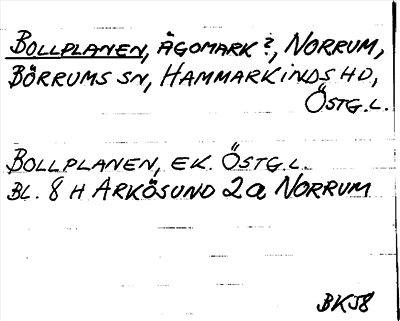 BOLLPLANEN, ÄGOMARK?, NORRUM,
BÖRRUMS SN, HAMMARKINDS HD,
ÖSTG.L.
BOLLPLANEN, EK. ÖSTG.L.
BL. 8 H ARKÖSUND 2a NORRUM
BK58